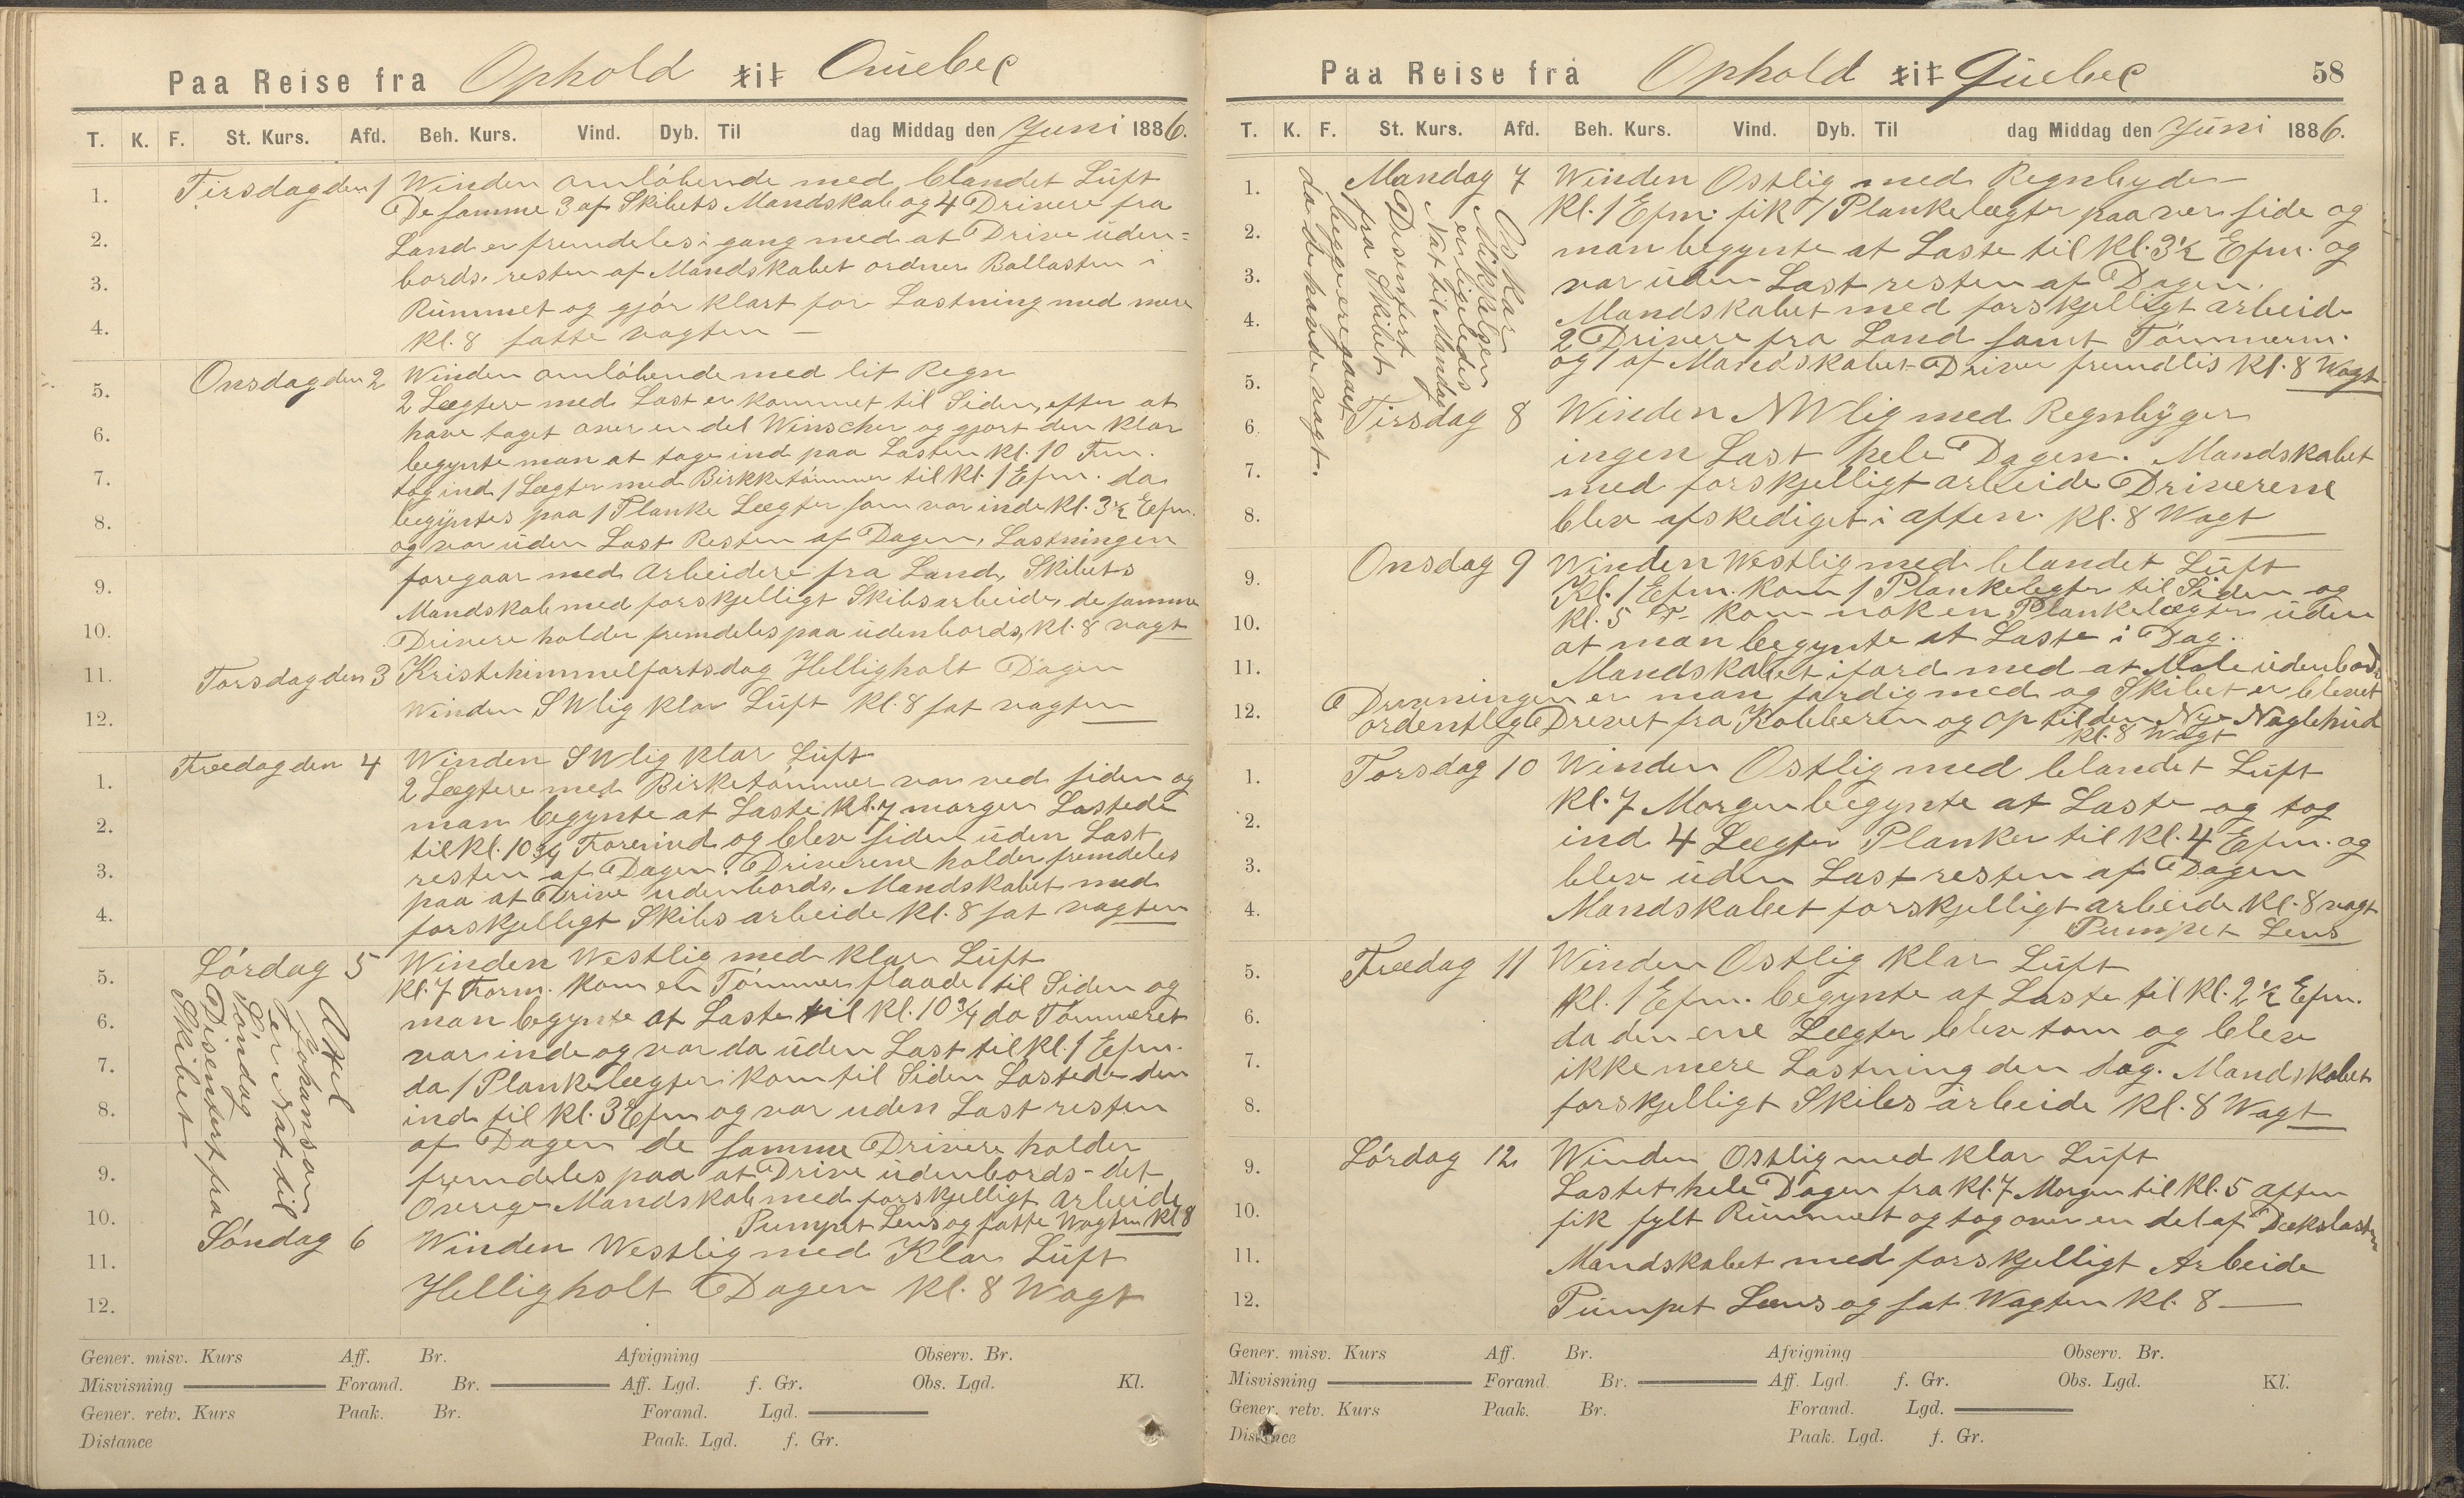 Paa Reise fra Ophold til Quebec
T. K. F. St. Kurs. Afd. Beh. Kurs. Vind. Dyb. Til dag Middag den Juni 1886.
Tirsdag den 1 Winden omløbende med blandet Lüft
De samme 3 af Skibets Mandskab og 4 Drivere fra
Land er fremdeles i gang med at Drive üden=
bords. resten af Mandskabet ordner Ballasten i
Rümmet og gjør klart for Lastning med mere
Kl. 8 satte vagten —
Onsdag den 2 Winden omløbende med lit Regn
2 Lægtere med Last er kommet til Siden, efter at
have taget over en del Winscher og gjort den klar
begynte man at tage ind paa Lasten Kl. 10 Fm.
tog ind 1 Lægter med Birkketømmer til Kl. 1 Efm. da
begÿntes paa 1 Planke Lægter som var inde Kl. 3½ Efm.
og var üden Last Resten af Dagen, Lastningen
foregaar med Arbeidere fra Land, Skibets
Mandskab med forskjelligt Skibsarbeide, de samme
Drivere holder fremdeles paa üdenbords, Kl. 8 vagt
Torsdag den 3 Kristihimmelfartsdag Helligholt Dagen
Winden SWlig klar Lüft Kl. 8 sat vagten
Freedag den 4 Winden SWlig klar Lüft
2 Lægtere med Birketømmer var ved siden og
man begynte at Laste Kl. 7 morgen Lastede
til Kl. 10¾ Form ind og blev siden üden Last
resten af Dagen. Driverene holder fremdeles
paa at Drive udenbords, Mandskabet med
forskjelligt Skibsarbeide Kl. 8 sat vagten
Lørdag 5 Winden Westlig med klar Lüft
Kl. 7 Form. kom en Tømmerflaade til Siden og
man begynte at Laste til Kl. 10¾ da Tømmeret
var inde og var da üden Last til Kl. 1 Efm.
da 1 Plankelægter kom til Siden Lastede den
ind til Kl. 3 Efm og var uden Last resten
af Dagen de samme Drivere holder
fremdeles paa at Drive üdenbords - det
Øverige Mandskab med forskjelligt Arbeide
Pumpet Lens og satte Wagten Kl 8
Axel
Johanson
er Nat til
Søndag
Disentert fra
Skibet
Søndag 6 Winden Westlig med Klar Lüft
Helligholt Dagen Kl. 8 Wagt
1.
2.
3.
4.
5.
6.
7.
8.
9.
10.
11.
12.
1.
2.
3.
4.
5.
6.
7.
8.
9.
10.
11.
12.
Gener. misv. Kurs Aff. Br. Afvigning Observ. Br.
Misvisning Forand. Br. Aff. Lgd. f. Gr. Obs. Lgd. Kl.
Gener. retv. Kurs Paak. Br. Forand. Lgd.
Distance Paak. Lgd. f. Gr.
Paa Reise fra Ophold til Qüebec 58
T. K. F. St. Kurs. Afd. Beh. Kurs. Vind. Dyb. Til dag Middag den Jüni 1886.
Mandag 7 Winden Ostlig med Regnbyder
Kl. 1 Efm. fik 1 Plankelægter paa ver side og
man begynte at Laste til Kl. 3½ Efm. og
var üden Last resten af Dagen.
Mandskabet med forskjelligt arbeide
2 Drivere fra Land samt Tømmerm.
og 1 af Mandskabet Driver fremdlis Kl. 8 Wagt
Oskar
Mikkelsen
er ligeledes
Nat til Mandag
Disentert
fra Skibet
begge ere gaaet
da de havde vagt.
Tirsdag 8 Winden NWlig med Regnbÿger
ingen Last hele Dagen. Mandskabet
med forskjelligt arbeide Driverene
blev afskediget i aften. Kl. 8 Wagt
Onsdag 9 Winden Westlig med blandet Lüft
Kl. 1 Efm. kom 1 Plankelegter til Siden og
Kl. 5 kom nok en Plankelægter üden
at man begynte at Laste i Dag.
Mandskabet ifard med at Male üdenbords
Drivningen er man færdig med og Skibet er blevet
ordentlig Drevet fra Kobberen og op til den Nye Naglehüd
Kl. 8 Wagt
Torsdag 10 Winden Ostlig med blandet Lüft
Kl. 7 Morgen begynte at Laste og tog
ind 4 Lægter Planker til Kl. 4 Efm. og
blev üden Last resten af Dagen
Mandskabet forskjelligt arbeide Kl. 8 vagt
Pumpet Lens
Freedag 11 Winden Ostlig klar Lüft
Kl. 1 Efm. begynte at Laste til Kl. 2½ Efm.
da den ene Lægter blev tom og blev
ikke mere Lastning den dag. Mandskabet
forskjelligt Skibs arbeide Kl. 8 Wagt
Lørdag 12 Winden Ostlig med klar Lüft
Lastet hele Dagen fra Kl. 7 Morgen til Kl. 5 Aften
fik fylt Rümmet og tog over en del af Dækslasten
Mandskabet med forskjelligt Arbeide
Pümpet Læns og sat Wagten Kl. 8 —
1.
2.
3.
4.
5.
6.
7.
8.
9.
10.
11.
12.
1.
2.
3.
4.
5.
6.
7.
8.
9.
10.
11.
12.
Gener. misv. Kurs Aff. Br. Afvigning Observ. Br.
Misvisning Forand. Br. Aff. Lgd. f. Gr. Obs. Lgd. Kl.
Gener. retv. Kurs Paak. Br. Forand. Lgd.
Distance Paak. Lgd. f. Gr.